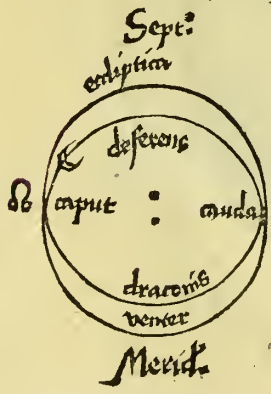 Sept:
ecliptica
deferens
☊ caput cauda
draconis
venter
Merid: